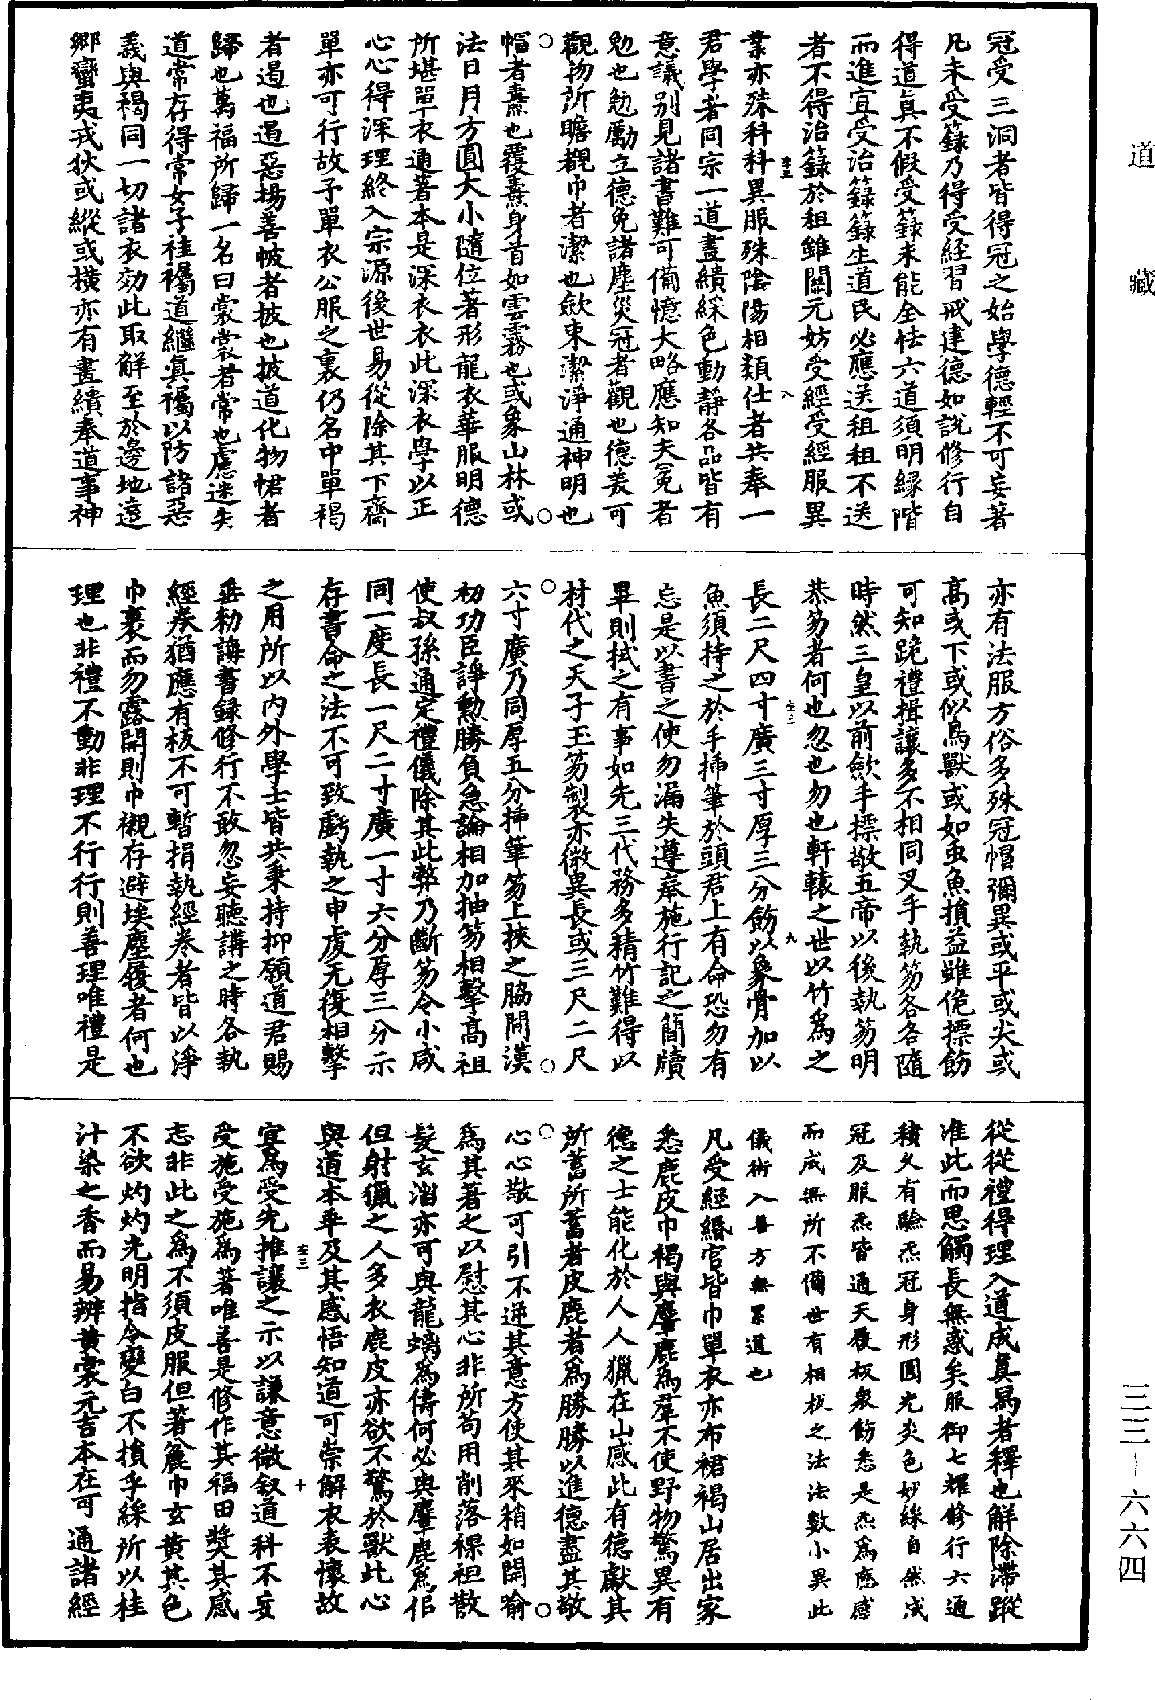 道藏
冠受三洞者皆得冠之始學德輕不可妄著
凡未受籙乃得受經習戒建德如說修行自
得道真不假受籙未能全怯六道須明緣階
而進宜受治籙籙生道民必應送租租不送
者不得治籙於租雖闕元妨受經受經服異
業亦殊科科異服殊陰陽相類仕者共奉一
君學者同宗一道畫繢綵色動靜各品皆有
意議別見諸書難可備憶大略應知夫冕者
勉也勉勵立德免諸塵災冠者觀也德美可
觀物所瞻觀巾者潔也斂束潔淨通神明也
幅者燾也覆燾身首如雲霧也或象山林或
法日月方圓大小隨位著形龍衣華服明德
所堪單衣通著本是深衣衣此深衣學以正
心心得深理終入宗源後世易從除其下齋
單亦可行故予單衣公服之裏仍名中單褐
者遏也遏惡揚善帔者披也披道化物帬者
歸也萬福所歸一名曰裳裳者常也慮迷失
道常存得常女子袿襡道繼真襡以防諸惡
義與褐同一切諸衣効此取解至於邊地遠
鄉蠻夷戎狄或縱或橫亦有畫繢奉道事神
亦有法服方俗多殊冠帽彌異或平或尖或
高或下或似鳥獸或如虫魚損益雖佹摽飾
可知跪禮揖讓多不相同叉手執笏各各隨
時然三皇以前斂手摽敬五帝以後執笏明
恭笏者何也忽也勿也軒轅之世以竹為之
長二尺四寸廣三寸厚三分飾以象骨加以
魚須持之於手插筆於頭君上有命恐勿有
忘是以書之使勿漏失遵奉施行記之簡牘
畢則拭之有事如先三代務多精竹難得以
材代之天子玉笏製亦微異長或三尺二尺
六寸廣乃同厚五分插筆笏上挾之脇間漢
初功臣諍勳勝負忿論相加抽笏相擊高祖
使叔孫通定禮儀除其此弊乃斷笏令小咸
同一度長一尺二寸廣一寸六分厚三分示
存書命之法不可致虧執之申虔无復相擊
之用所以內外學士皆共秉持抑願道君賜
垂勑誨書録修行不敢忽妄聽講之時各執
經卷猶應有板不可暫捐執經卷者皆以淨
巾裹而勿露開則巾襯存避埃塵履者何也
理也非禮不動非理不行行則善理唯禮是
從從禮得理入道成真舄者釋也解除滯蹤
准此而思觸長無惑矣服御七耀修行六通
積久有驗炁冠身形圓光炎色妙絲自然成
冠及服炁皆通天履板衆飾悉是炁為應感
而成無所不備世有相杖之法法數小異此
儀術入善方無累道也
凡受經緡官皆巾單衣亦布裙褐山居出家
悉鹿皮巾褐與麞鹿為羣不使野物驚異有
德之士能化於人人獵在山感此有德獻其
所蓄所蓄者皮鹿者為勝勝以進德盡其敬
心心敬可引不逆其意方使其來稍如開喻
為其著之以慰其心非所苟用削落祼袒散
髮玄㴠亦可與龍螭為儔何必與麞鹿為侶
但射獵之人多衣鹿皮亦欲不驚於獸此心
與道本乖及其感悟知道可崇解衣表懷故
宜為受先推讓之示以謙意微叙道科不妄
受施受施為著唯善是修作其福田獎其感
志非此之為不須皮服但著麄巾玄黃其色
不欲灼灼光明指令變白不損乎綵所以桂
汁染之香而易辦黃裳元吉本在可通諸經
三三—六六四